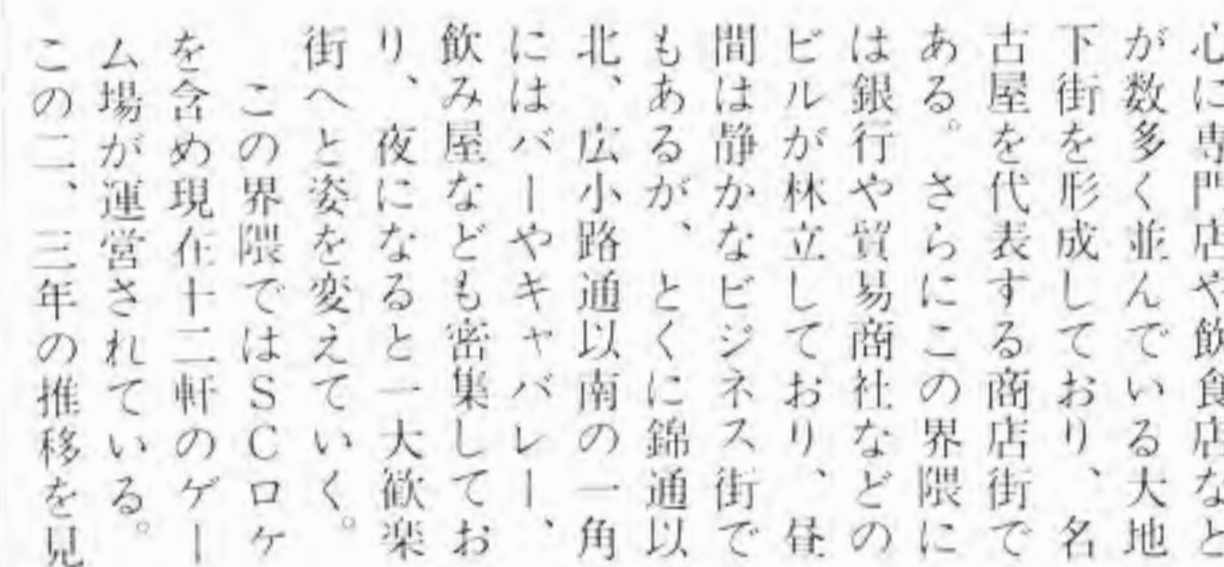 心に専門店や飲食店など
が数多く並んでいる大地
下街を形成しており、名
古屋を代表する商店街で
ある。さらにこの界隈に
は銀行や貿易商社などの
ビルが林立しており、昼
間は静かなビジネス街で
もあるが、とくに錦通以
北、広小路通以南の一角
にはバーやキャバレー、
飲み屋なども密集してお
り、夜になると一大歓楽
街へと姿を変えていく。
この界隈ではＳＣロケ
を含め現在十二軒のゲー
ム場が運営されている。
この二、三年の推移を見